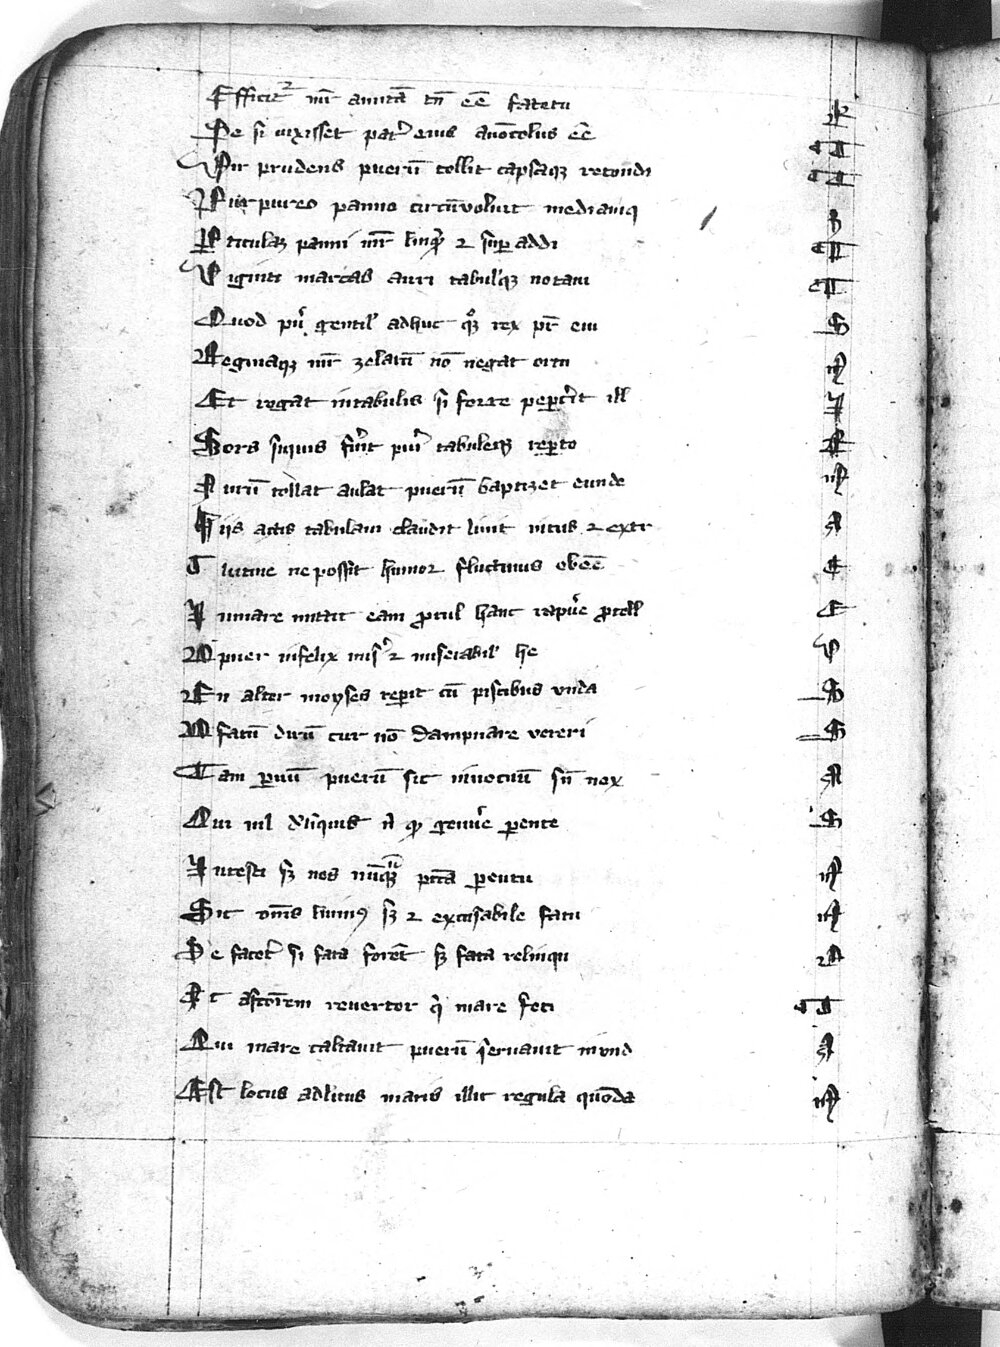 Efficit᷑ mr̄ amitā tn̄ eē fatetu R
Se si vixisset pat᷑ eius auōculus eē
Vir prudens pueru̅ tollit capsaqꝫ rotondi
Purpureo panno circu̅voluit mediamq
P ticulaꝫ panni mr̄ linq̅ ⁊ sup addi
Viginti marcas auri tabulꝫ notam
Quod pu᷑ gentil᷑ adhuc rex pr̄ eiu S
Reginaqꝫ mr̄ zelatu̅ no̅ negat ortu m
Et rogat in tabulis si forte pepert᷑it ill
Sors siquis fu᷑it pu᷑i tabuleqꝫ rep̱to R
Auru̅ tollat aulat pueru̅ baptizet eunde m
Hiis actis tabulam claudit linit intus ⁊ extr A
T ne possit humor fluctiuus obeē E
In mare mittit eam ꝓcul hanc rapu᷑e ꝓcell E
O puer infelix mis᷑ ⁊ miserabil᷑ he V
En alter moyses rep̱it cu̅ piscibus vnda S
O fatu̅ diru̅ cur no̅ dampnare vereri S
Tam p̱uu̅ pueru̅ sic innocuu̅ sn̄ nox A
Qui nil d᷑liquit genu᷑e p̱ente S
Incesti sꝫ nos nu̅qꝫ pctā p̱entu m
Sic om̅s sꝫ ⁊ excusabile fatu m
De facel᷑ si fata fore̅t sꝫ fata relinqu A
Et reuertor q̇ mare feci
Qui mare calcauit pueru̅ seruauit in vnd A
Est locus ad litus maris illic regula quōda m